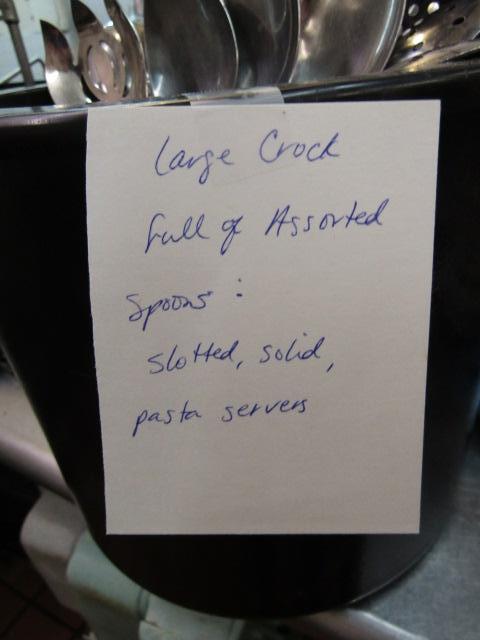 Large Crock
full of Assorted
Spoons:
slotted, solid,
pasta servers